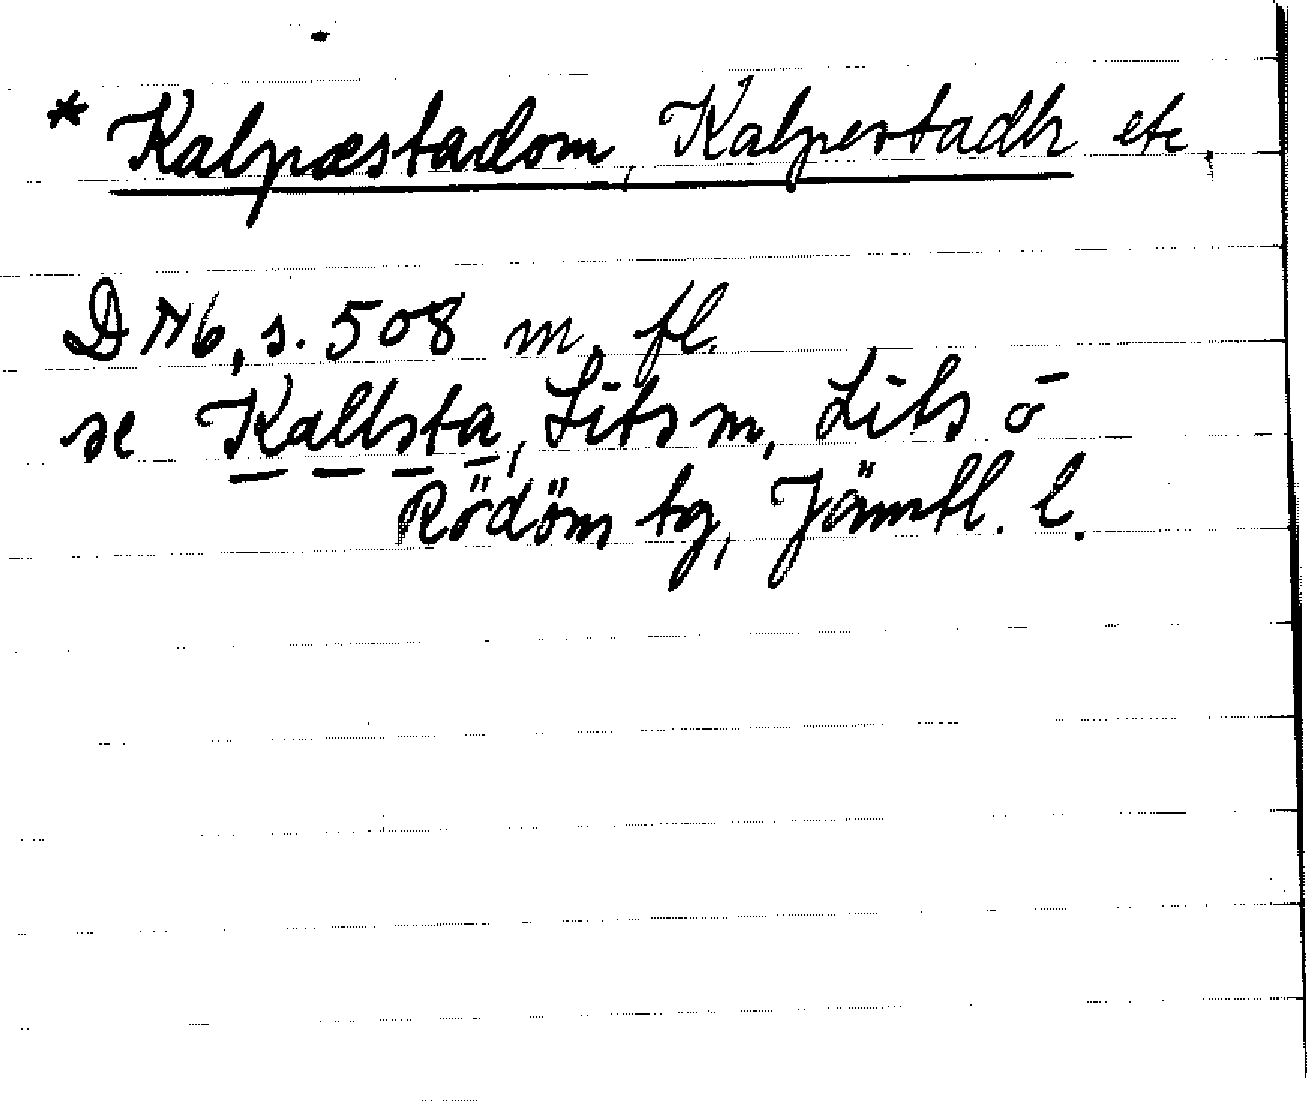 * Kalpæstadom, Kalpestadh etc.
DN 6, s. 508 m. fl.
se Kallsta, Lits sn, Lits o
Rödöns tg, Jämtl. l.